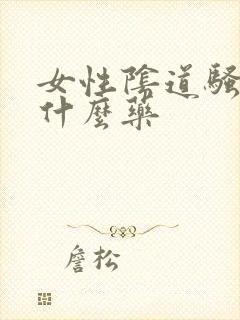 女性陰道騷
什麼藥
詹松